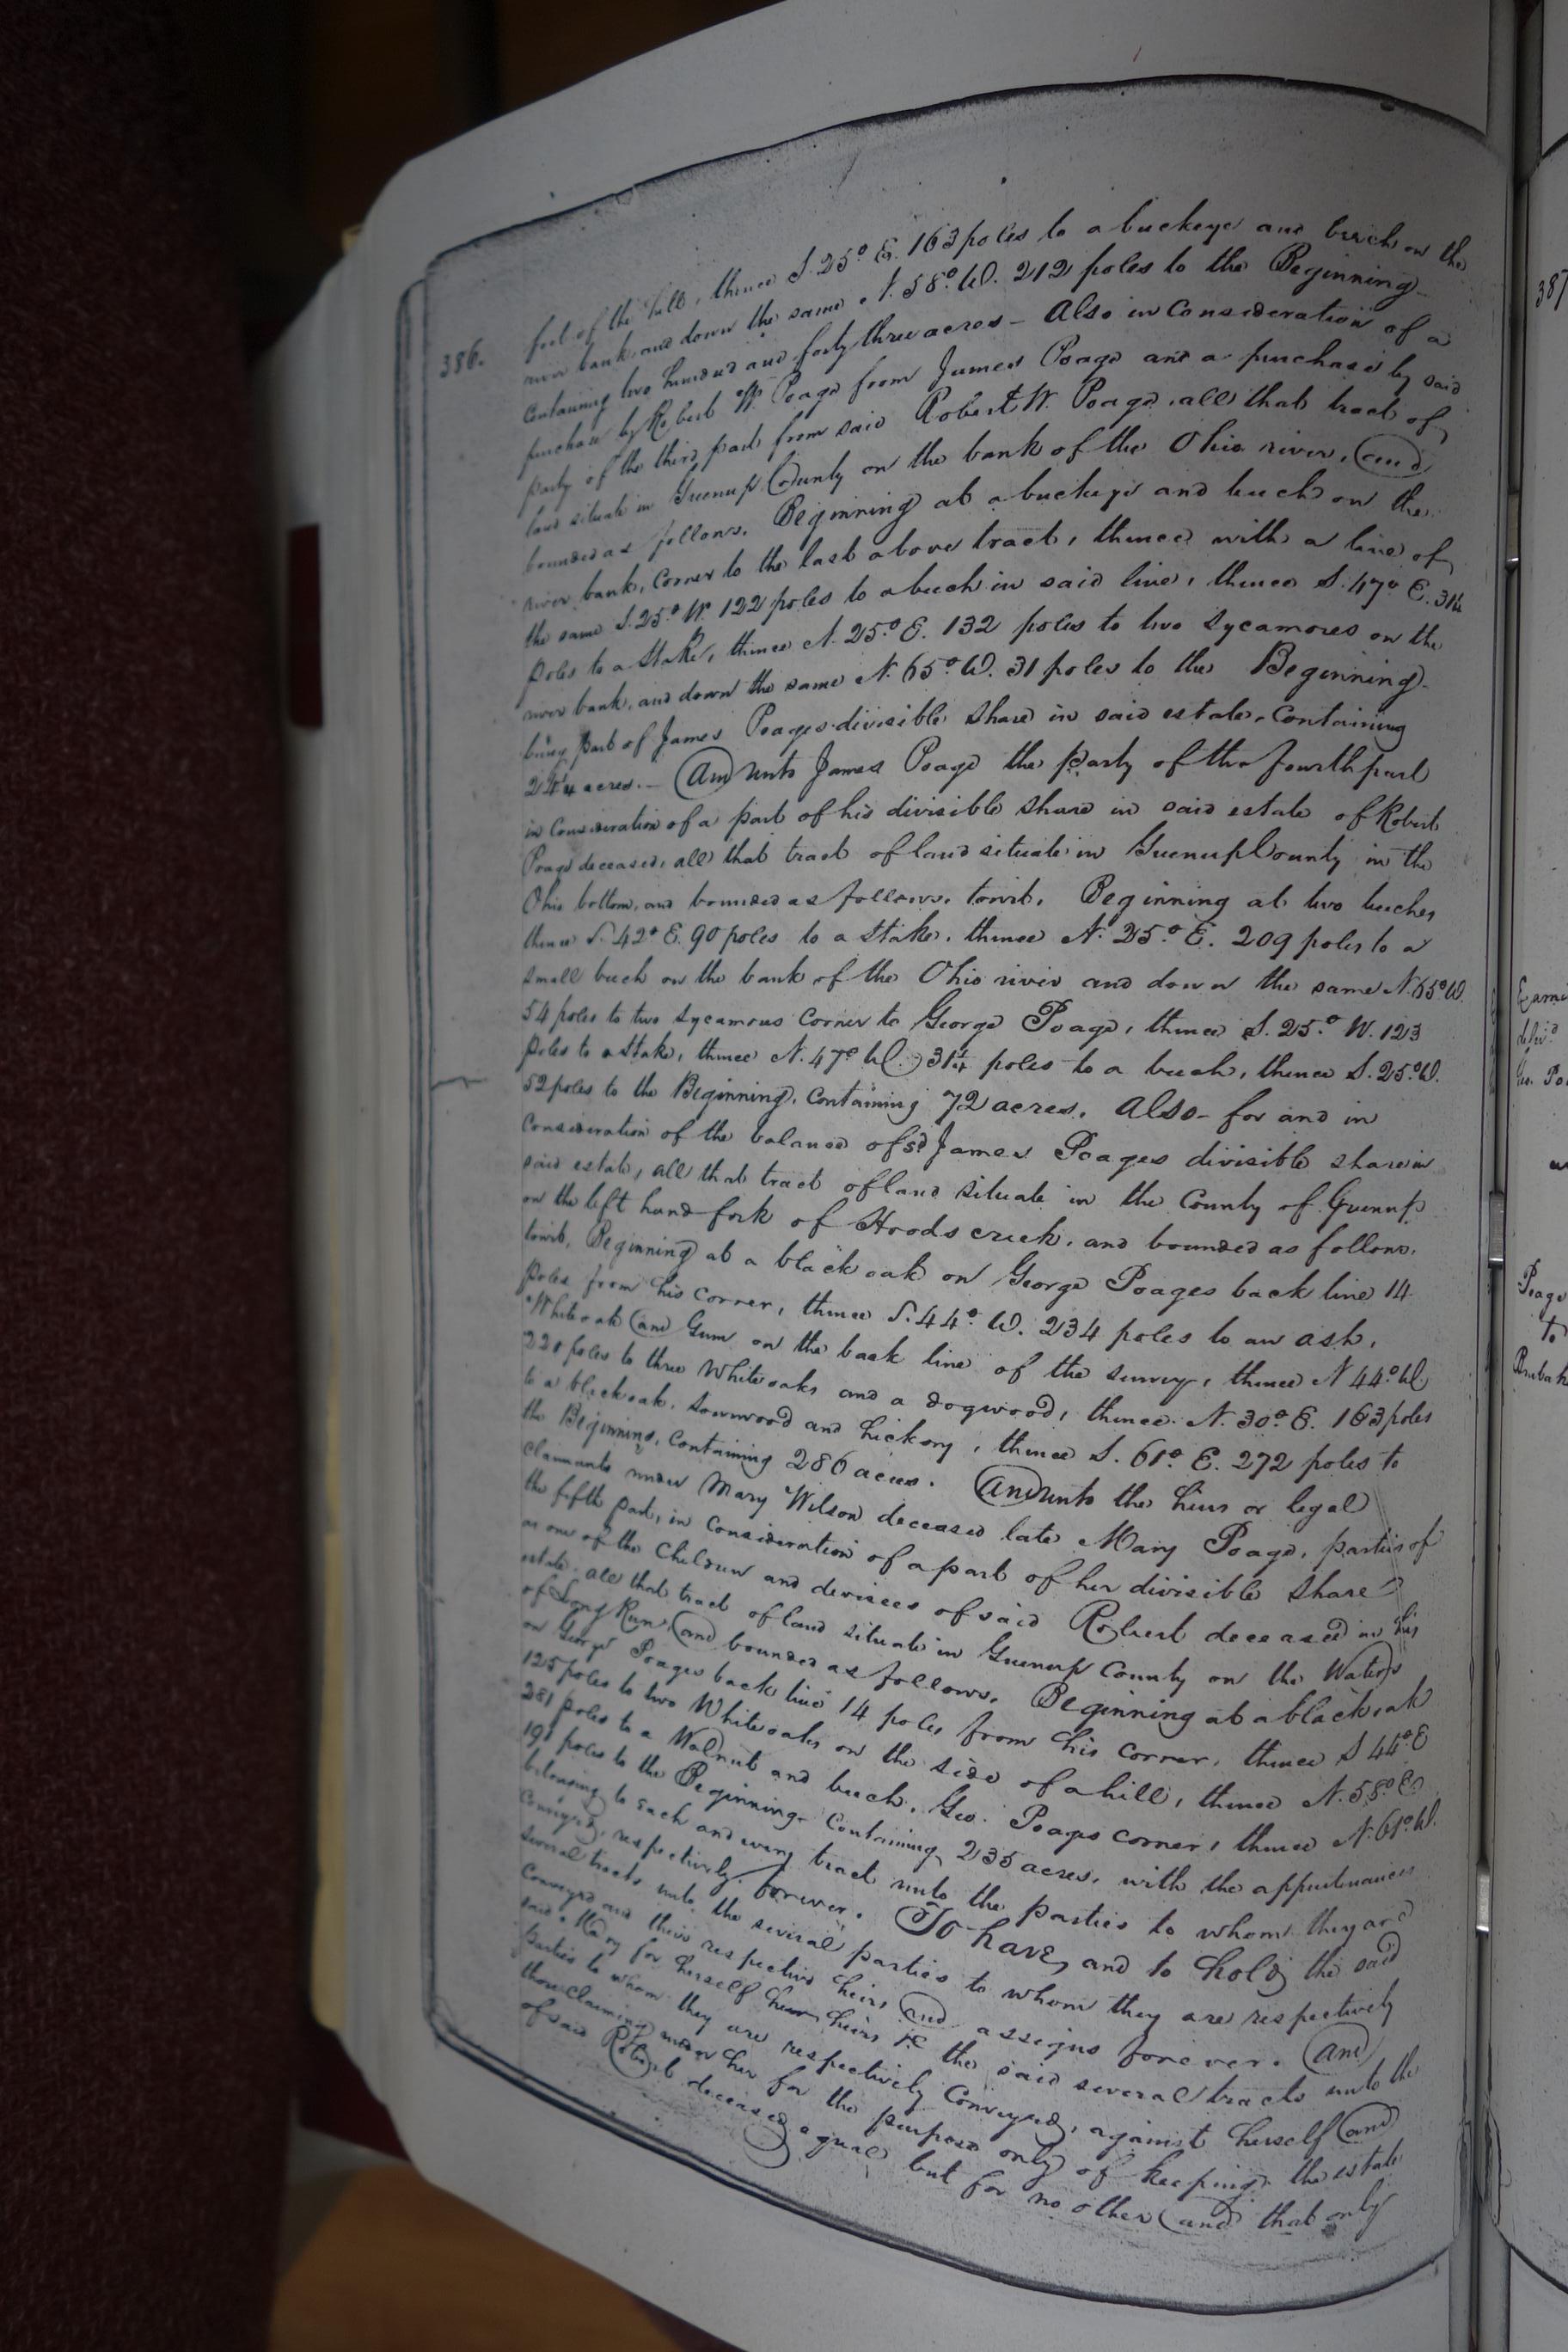 386.
foot of the hill, thence S. 25° E. 163 poles to a buckeye and beech on the
river bank and down the same N. 58° W. 212 poles to the Beginning
Containing two hundred and forty three acres - Also in Consideration of a
purchase by Robert W. Poage from James Poage and a purchase by said
party of the third part from said Robert W. Poage, all that tract of
land situate in Greenup County on the bank of the Ohio river, and
bounded as follows. Beginning at a buckeye and beech on the
river bank, Corner to the last above tract, thence with a line of
the same S. 25° W. 122 poles to a beech in said line, thence S. 47° E. 31¼
poles to a Stake, thence N. 25° E. 132 poles to two Sycamores on the
river bank, and down the same N. 65° W. 31 poles to the Beginning
being part of James Poages divisible Share in said estate, Containing
acres. - And unto James Poage the party of the fourth part
in Consideration of a part of his divisible Share in said estate of Robert
Poage deceased, all that tract of land situate in Greenup County in the
Ohio bottom, and bounded as follows, towit, Beginning at two beeches,
thence S. 42° E. 90 poles to a Stake, thence N. 25° E. 209 poles to a
small beech on the bank of the Ohio river and down the same N. 65° W.
54 poles to two Sycamores Corner to George Poage, thence S. 25° W. 123
poles to a Stake, thence N. 47° W. 31¼ poles to a beech, thence S. 25° W.
52 poles to the Beginning, Containing 72 acres. Also - for and in
Consideration of the balance of sd James Poages divisible share in
said estate, all that tract of land situate in the County of Greenup
on the left hand fork of Hoods creek, and bounded as follows,
towit, Beginning at a black oak on George Poages back line 14
poles from his corner, thence S. 44° W. 234 poles to an ash,
White oak and Gum on the back line of the survey, thence N 44° W
220 poles to three White oaks and a dogwood, thence N. 30° E. 163 poles
to a black oak, Sourwood and hickory, thence S. 61° E. 272 poles to
the Beginning, Containing 286 acres. And unto the heirs or legal
Claimants under Mary Wilson deceased late Mary Poage, parties of
the fifth part, in Consideration of a part of her divisible Share
as one of the Children and devisees of said Robert deceased in his
estate, all that tract of land situate in Greenup County on the Waters
of Long Run, and bounded as follows. Beginning at a black oak
on George Poages back line 14 poles from his corner, thence S 44° E
125 poles to two White oaks on the side of a hill, thence N. 58° E
281 poles to a Walnut and beech, Geo. Poages corner, thence N. 61° W.
191 poles to the Beginning Containing 235 acres, with the appurtenances
belonging to each and every tract unto the parties to whom they are
Conveyed, respectively forever. To have, and to hold, the said
several tracts unto the several parties to whom they are respectively
Conveyed and their respective heirs and assigns forever. And
said Mary for herself her heirs &c the said several tracts unto the
parties to whom they are respectively Conveyed, against herself and
those claiming under her for the purpose only of keeping the estate
of said Robert deceased equal but for no other and that only
387
Poage
to